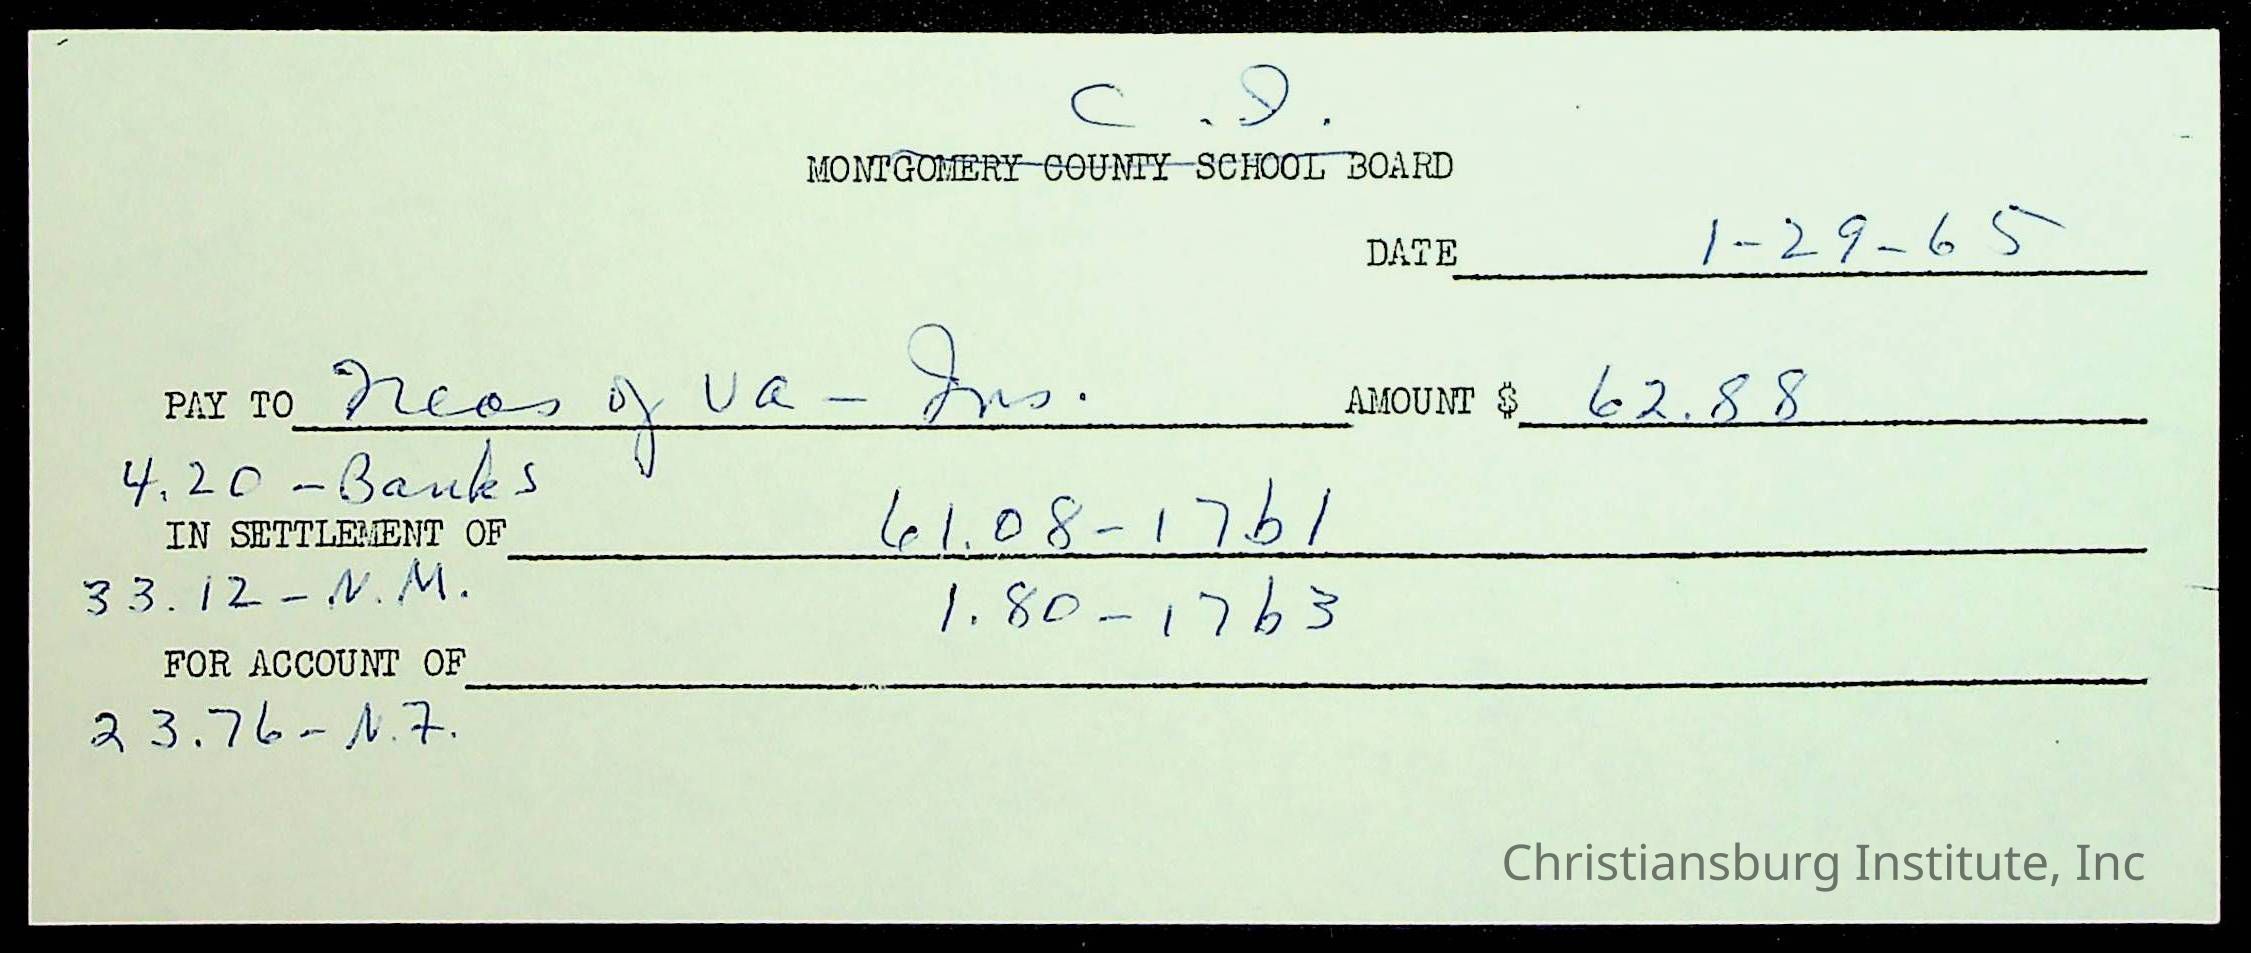 C.I.
MONTGOMERY COUNTY SCHOOL BOARD
DATE 1-29-65
PAY TO Treas of Va - Ins. AMOUNT $ 62.88
4.20 - Banks
IN SETTLEMENT OF 61.08 - 17b1
33.12 - N.M. 1.80 - 17b3
FOR ACCOUNT OF
23.76 - N.F.
Christiansburg Institute, Inc